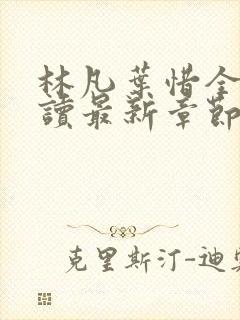 林凡葉惜全
讀最新章節
克里斯汀-迪